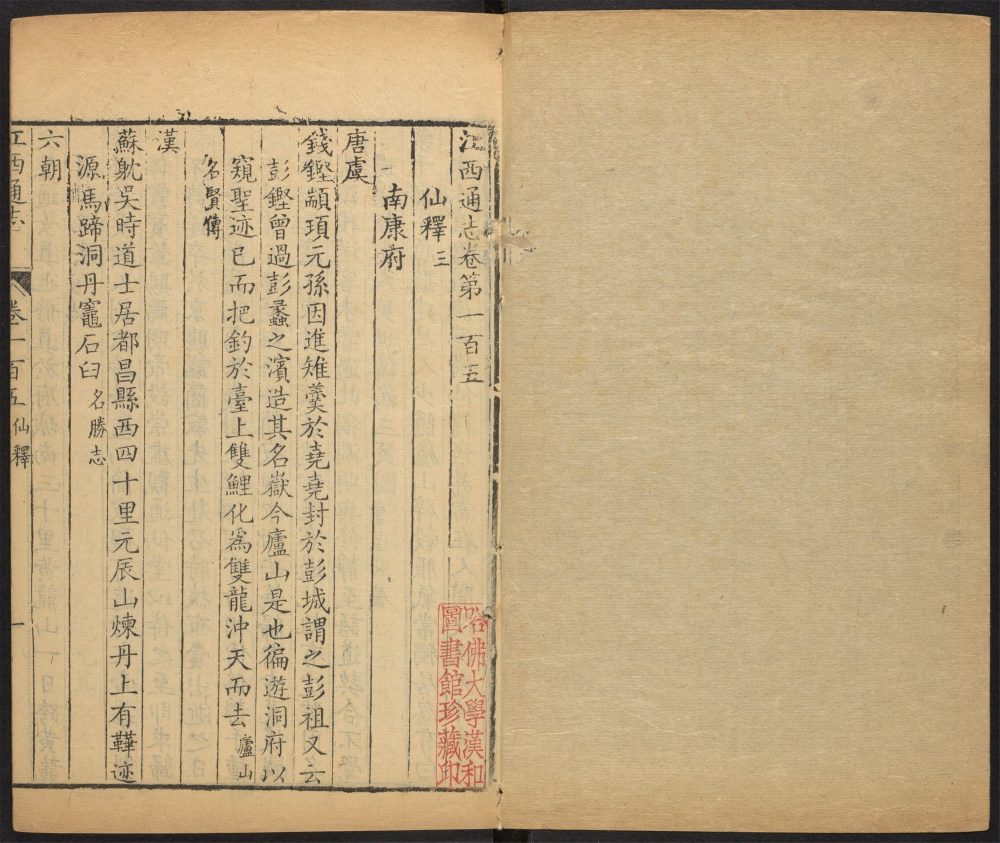 江西通志卷第一百五
仙釋三
南康府
唐虞
錢鏗顓頊元孫因進雉羹於堯堯封於彭城謂之彭祖又云
彭鏗曾過彭蠡之濱造其名嶽今廬山是也徧遊洞府以
窺聖迹已而把釣於臺上雙鯉化爲雙龍沖天而去廬山
名賢傳
漢
蘇躭吳時道士居都昌縣西四十里元辰山煉丹上有鞾迹
源馬蹄洞丹竈石臼名勝志
六朝
江西通志
卷一百五仙釋
一
哈佛大學漢和
圖書館珍藏印